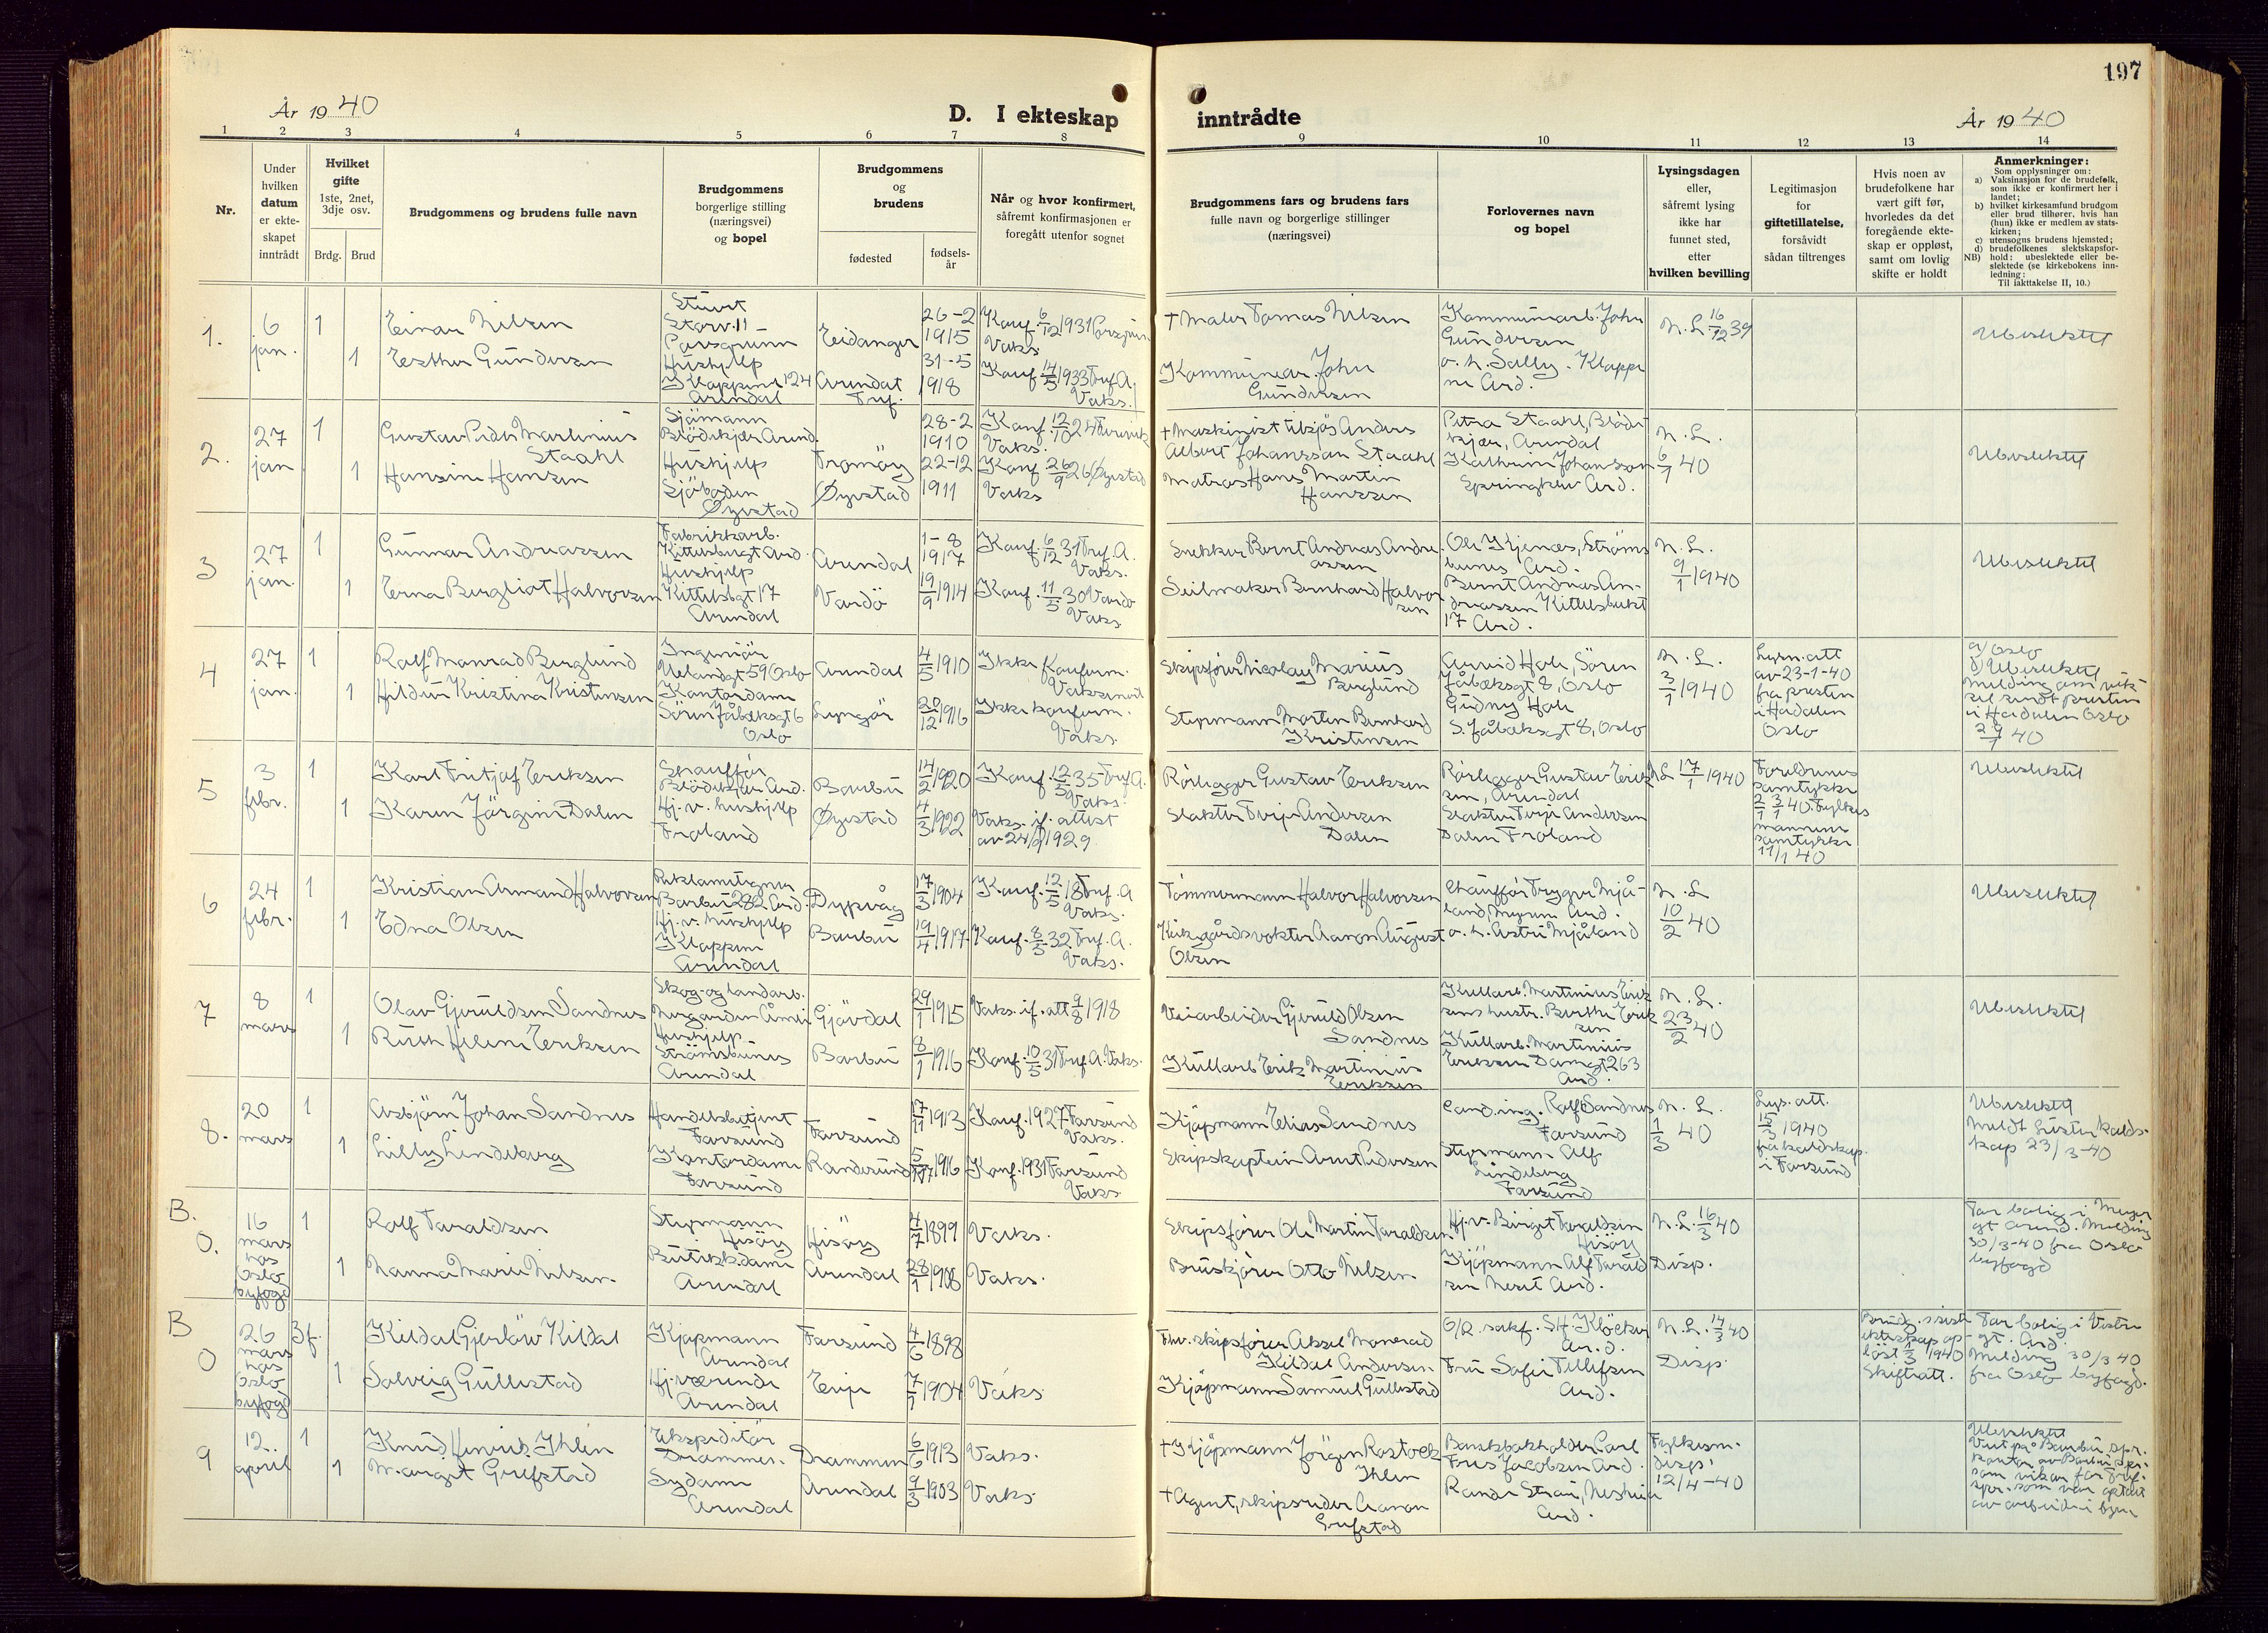 197
År 1940
D. I ekteskap inntrådte
År 1940
1 2 3 4 5 6 7 8 9 10 11 12 13 14
Nr.
Under
hvilken
datum
er ekte-
skapet
inntrådt
Hvilket
gifte
1ste, 2net,
3dje osv.
Brdg. Brud
Brudgommens og brudens fulle navn
Brudgommens
borgerlige stilling
(næringsvei)
og bopel
Brudgommens
og
brudens
fødested
fødsels-
år
Når og hvor konfirmert,
såfremt konfirmasjonen er
foregått utenfor sognet
Brudgommens fars og brudens fars
fulle navn og borgerlige stillinger
(næringsvei)
Forlovernes navn
og bopel
Lysingsdagen
eller,
såfremt lysing
ikke har
funnet sted,
etter
hvilken bevilling
Legitimasjon
for
giftetillatelse,
forsåvidt
sådan tiltrenges
Hvis noen av
brudefolkene har
vært gift før,
hvorledes da det
foregående ekte-
skap er oppløst,
samt om lovlig
skifte er holdt
Anmerkninger:
Som opplysninger om:
a) Vaksinasjon for de brudefolk,
som ikke er konfirmert her i
landet;
b) hvilket kirkesamfund brudgom
eller brud tilhører, hvis han
(hun) ikke er medlem av stats-
kirken;
c) utensogns brudens hjemsted;
d) brudefolkenes slektskapsfor-
hold: ubeslektede eller be-
slektede (se kirkebokens inn-
ledning:
NB)
Til iakttakelse II, 10.)
1.
6
jan.
1
1
Einar Nilsen
Esther Gundersen
Porsgrunn
Hushjelp
Klappene 124
Arendal
Eidanger
Arendal
Tref.
26-2
1915
31-5
1918
Konf. 6/12 1931 Porsgrun.
Vaks.
Konf. 14/5 1933 Tref. A.
Vaks.
+ Maler Tomas Nilsen
Kommunear. John
Gundersen
Kommunearb. John
Gundersen
o. h. Sally. Klappe
ne Ard.
N. L. 16/12 39
Ubeslektet
2.
27
jan
1
1
Gustav Peder Martinius
Staahl
Hansine Hansen
Sjømann
Blødekjær Arend.
Hushjelp
Sjøboden
Øyestad
Tromøy
Øyestad
28-2
1910
22-12
1911
Vaks.
Konf. 26/9 26 Øyestad
Vaks
Albert Johanssan Staahl
Matros Hans Martin
Hanssen
Petra Staahl, Bløde
kjær, Arendal
Kathrine Johansson
Springkleiv Ard.
N. L.
6/1 40
Ubeslektet
3
27
jan.
1
1
Gunnar Andreassen
Erna Bergliot Halvorsen
Fabrikkarb.
Kittelsbugt Ard.
Hushjelp
Kittelsbgt 17
Arendal
Arendal
Vardö
1-8
1917
19/9 1914
Konf. 6/12 31 Tref. A.
Vaks.
Konf. 11/5 30 Vardö
Vaks
Snekker Bernt Andreas Andre
assen
Seilmaker Bernhard Halvor
sen
Ole Kjenæs, Strøms
bunes Ard.
Bernt Andreas An-
dreassen Kittelsbukt
17 Ard.
N. L.
9/1 1940
Ubeslektet
4
27
jan.
1
1
Rolf Monrad Berglund
Hildur Kristina Kristensen
Ingeniør
Uelandsgt 59 Oslo
Kontordame
Sören Jåbæksgt 6
Oslo
Arendal
Lyngør
4/5 1910
20/12 1916
Ikke konfirm.
Ikke konfirm.
Vaks.
Skipsfører Nicolay Marius
Berglund
Styrmann Martin Bernhard
Kristensen
Arvid Hole, Sören
Jåbæksgt 8, Oslo
Gudny Hole
S. Jåbæksgt 8, Oslo
N. L.
3/1 1940
Lysn. att
av 23-1-40
fra presten
Oslo
c) Oslo
d) Ubeslektet
Melding om vik
sel sendt presten
29/1 40
5
3
febr.
1
1
Karl Fritjof Eriksen
Karen Jørgine Dalen
Sjaufför
Blödekjær Ard.
Hj. v. hushjelp
Froland
Barbu
Øyestad
14/2 1920
4/3 1922
Konf. 12/5 35 Tref. A.
Vaks.
Vaks. if. attest
av 24/9 1929
Rörlegger Gustav Eriksen
Slakter Terje Andersen
Dalen
Rörlegger Gustav Erik
sen, Arendal
Slakter Terje Andersen
Dalen Froland
N L 17/1 1940
Foreldrenes
samtykke
mannens
samtykke
11/1 40
Ubeslektet
6
24
febr.
1
1
Kristian Armand Halvorsen
Edna Olsen
Reklametegner
Barbu 282 Ard.
Hj. v. hushjelp
Klappene
Arendal
Dypvåg
Barbu
17/3 1904
19/4 1917
Konf. 12/5 18 Tref. A
Vaks.
Konf. 8/5 32 Tref. A.
Vaks.
Tömmermann Halvor Halvorsen
Kirkegårdsvokter Aanon August
Olsen
Chaufför Trygve Mjå-
land, Myrene Ard.
o. h. Astri Mjåland
N. L
10/2 40
Ubeslektet
7
8
mars
1
1
Olav Gjeruldsen Sandnes
Ruth Helene Eriksen
Skog- og landarb.
Nergarden Åmli
Hushjelp
Strømsbunes
Arendal
Gjövdal
Barbu
29/1 1915
8/1 1916
Vaks. if. att 9/8 1918
Konf. 10/5 31 Tref. A. Vaks.
Veiarbeider Gjeruld Olsen
Sandnes
Kullarb Erik Martinius
Eriksen
Kullarb. Martinius Erik
sens hustr. Berthe Erik
sen
Kullarb. Martinius
Eriksen Damsgt 263
Ard.
N. L.
23/2 40
Ubeslektet
8.
20
mars
1
1
Asbjørn Johan Sandnes
Lilly Lindeberg
Handelsbetjent
Farsund
Kontordame
Farsund
Farsund
Randesund
17/11 1913
1916
Konf. 1927 Farsund
Vaks.
Konf. 1931 Farsund
Vaks.
Kjøpmann Elias Sandnes
Skipskaptein Arnt Pedersen
Cand. ing. Rolf Sandnes
Farsund
Styrmann Alf
Lindeberg
Farsund
N. L.
1/3 40
Lys. att.
15/3 1940
i Farsund
Ubeslektet
Meldt Lister kalds-
kap 23/3-40
B.
0.
16
mars
hos
Oslo
byfogd
1
1
Rolf Taraldsen
Nanna Marie Nilsen.
Styrmann
Hisøy
Butikkdame
Arendal
Hisøy
Arendal
4/7 1899
28/1 1908
Vaks.
Vaks.
Skipsfører Ole Martin Taraldsen
Bruskjører Otto Nilsen
Hj. v. Birgit Taraldsen
Hisøy
Kjøpmann Alf Tarald
sen Neset Ard.
N. L. 16/3 40
Disp.
Tar bolig i Meyer
gt Arend. Melding
30/3-40 fra Oslo
byfogd
B
0
26
mars
hos
Oslo
byfogd
3 f.
1
Kildal Gjerløw Kildal
Solveig Gullestad
Kjøpmann
Arendal
Hj. værende
Arendal
Farsund
Evje
4/6 1898
7/1 1904
Vaks.
Fhv. skipsfører Aksel Monerad
Kildal Andersen
Kjøpmann Samuel Gullestad
O/R. sakf. S. H. Kløcker
Ar.d.
Fru Sofie Tellefsen
Ard.
N. L. 14/3 40
Disp.
Brudg. s siste
ekteskap op-
løst 1/3 1940
Skifteatt.
Tar bolig i Vestre
gt. Ard.
Melding 30/3 40
fra Oslo byfogd.
9
12.
april
1
1
Knud Henrik Ihlen
Margit Grefstad
Ekspeditør
Drammen.
Sydame
Arendal
Drammen
Arendal
6/6 1913
9/3 1903
Vaks.
Vaks.
+ Kjøpmann Jørgen Rostock
Ihlen
+ Agent, skipsreder Aanon
Grefstad
Bankbokholder Carl
Fres Jacobsen Ard.
Ard.
Fylkesm.
disp.
12/4-40
Ubeslektet
Viet på Barbu spr.
kontor av Barbu spr.
som vikar for Tref.
spr. som var optatt
av arbeide i byen